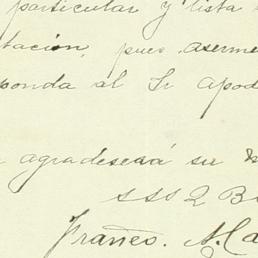 particular y lista
tación, pues aserme
ponda al Sr Apod
agradeserá su
SSS Q B
Franco. A. Ca